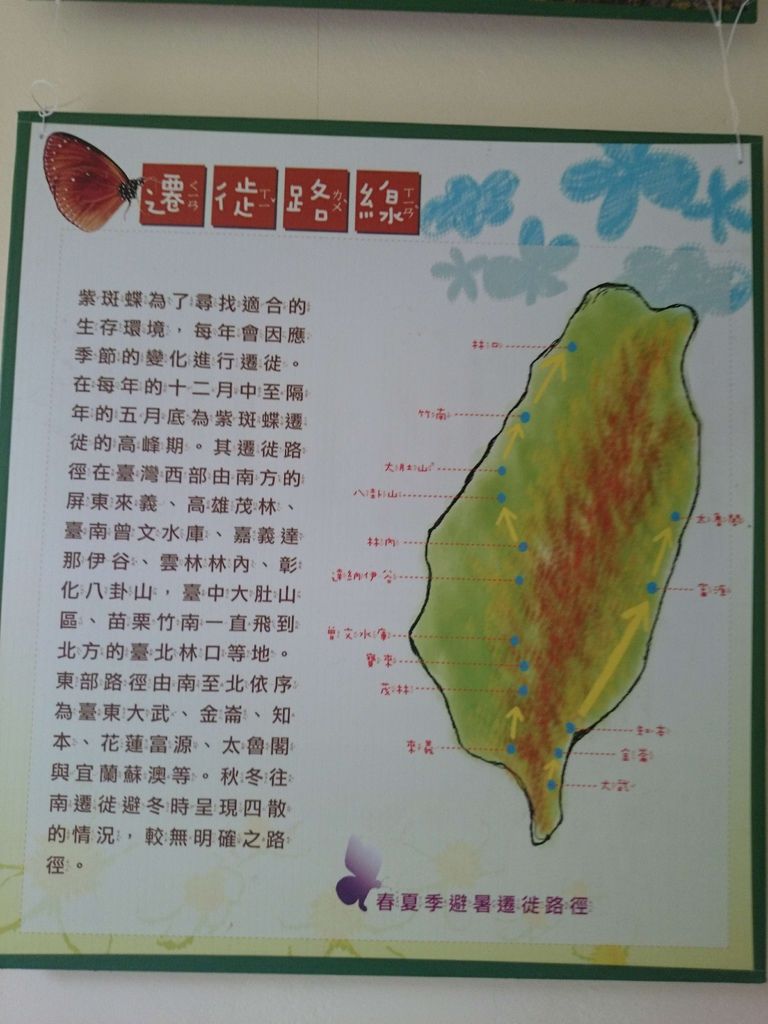 遷徙路線
紫斑蝶為了尋找適合的
生存環境，每年會因應
季節的變化進行遷徙。
在每年的十二月中至隔
年的五月底為紫斑蝶遷
徙的高峰期。其遷徙路
徑在臺灣西部由南方的
屏東來義、高雄茂林、
臺南曾文水庫、嘉義達
那伊谷、雲林林內、彰
化八卦山，臺中大肚山
區、苗栗竹南一直飛到
北方的臺北林口等地。
東部路徑由南至北依序
為臺東大武、金崙、知
本、花蓮富源、太魯閣
與宜蘭蘇澳等。秋冬往
南遷徙避冬時呈現四散
的情況，較無明確之路
徑。
林口
竹南
大肚山
八卦山
林內
達納伊谷
曾文水庫
寶來
茂林
來義
太魯閣
富源
知本
金崙
大武
春夏季避暑遷徙路徑